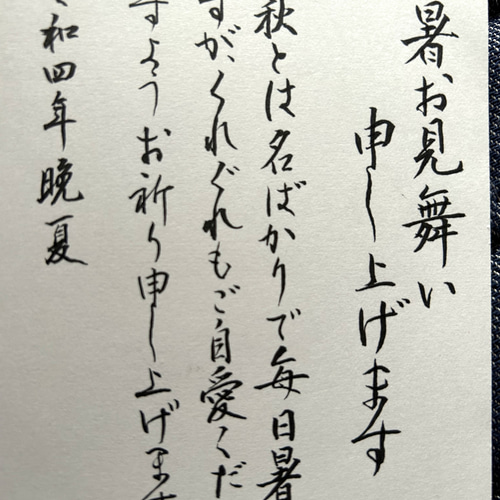 暑お見舞い
申し上げます
秋とは名ばかりで毎日暑
すが、くれぐれもご自愛くだ
すようお祈り申し上げます
和四年晩夏